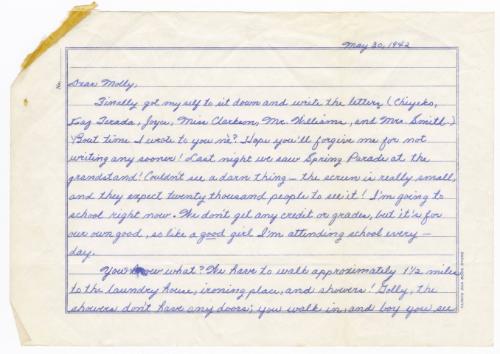 May 30, 1942
Dear Molly,
Finally got my self to sit down and write the letters (Chiyeko,
Kaz Terada, Joyce, Miss Clarkson, Mr. Williams, and Mrs. Smith.)
'Bout time I wrote to you n'? Hope you'll forgive me for not
writing any sooner! Last night we saw Spring Parade at the
grandstand! Couldn't see a darn thing — the screen is really small,
and they expect twenty thousand people to see it! I'm going to
school right now. We don't get any credit or grades, but it's for
our own good, so like a good girl I'm attending school every —
day.
You know what? We have to walk approximately 1½ miles
to the laundry house, ironing place, and showers! Golly, the
showers don't have any doors; you walk in, and boy you see